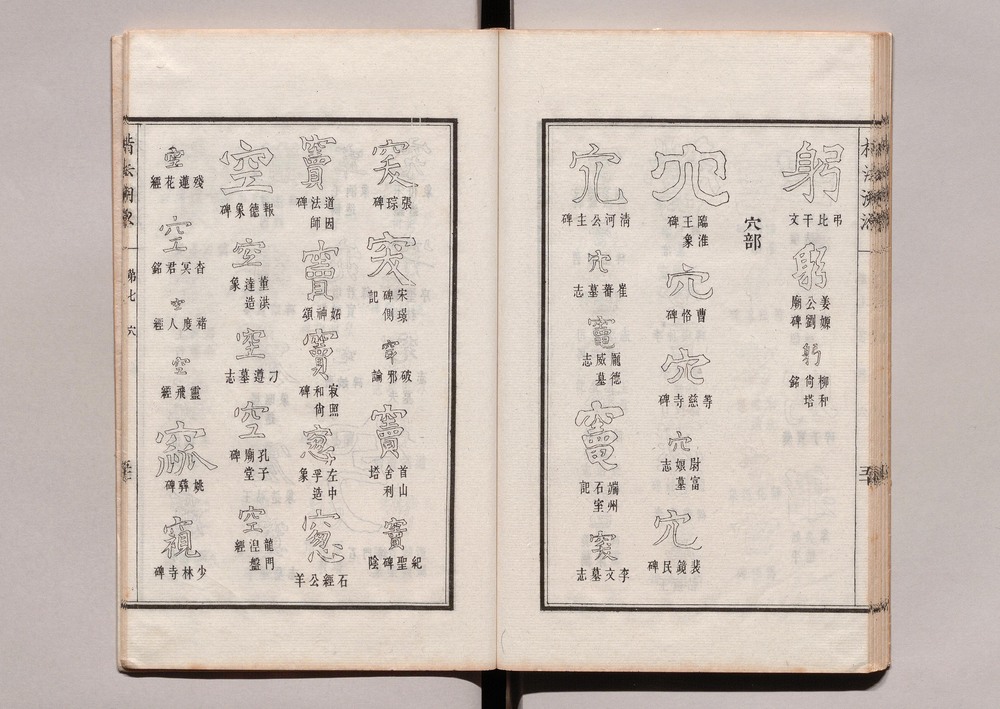 躬
弔比干文
躬
姜嫄公劉廟碑
躬
柳和尙塔銘
穴部
穴
臨淮王象碑
穴
曹恪碑
穴
等慈寺碑
穴
尉富娘墓志
穴
裴鏡民碑
穴
淸河公主碑
穴
崔蕃墓志
竈
龎德威墓志
竈
端州石室記
突
李文墓志
突
張琮碑
突
宋璟碑側記
穿
破邪論
竇
首山舍利塔
竇
紀聖碑陰
竇
道因法師碑
竇
姤神頌
竇
寂照和尙碑
窓
左中孚造象
窓
石經公羊
空
報德象碑
空
董洪達造象
空
刁遵墓志
空
孔子廟堂碑
空
龍門湼盤經
空
殘蓮花經
空
杳冥君銘
空
褚度人經
空
靈飛經
窳
姚彝碑
窺
少林寺碑
第七 穴